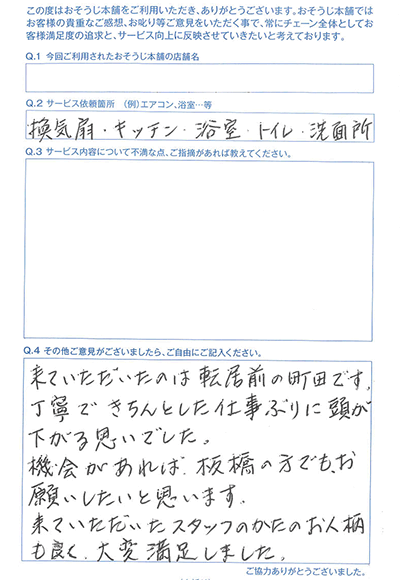 この度はおそうじ本舗をご利用いただき、ありがとうございます。おそうじ本舗では
お客様の貴重なご感想、お叱り等ご意見をいただく事で、常にチェーン全体としてお
客様満足度の追求と、サービス向上に反映させていきたいと考えております。
Q.1 今回ご利用されたおそうじ本舗の店舗名
Q.2 サービス依頼箇所 (例)エアコン、浴室…等
換気扇・キッチン・浴室・トイレ・洗面所
Q.3 サービス内容について不満な点、ご指摘があれば教えてください。
Q.4 その他ご意見がございましたら、ご自由にご記入ください。
来ていただいたのは転居前の町田です。
丁寧できちんとした仕事ぶりに頭が
下がる思いでした。
機会があれば、板橋の方でも、お
願いしたいと思います。
来ていただいたスタッフのかたのお人柄
も良く、大変満足しました。
ご協力ありがとうございました。